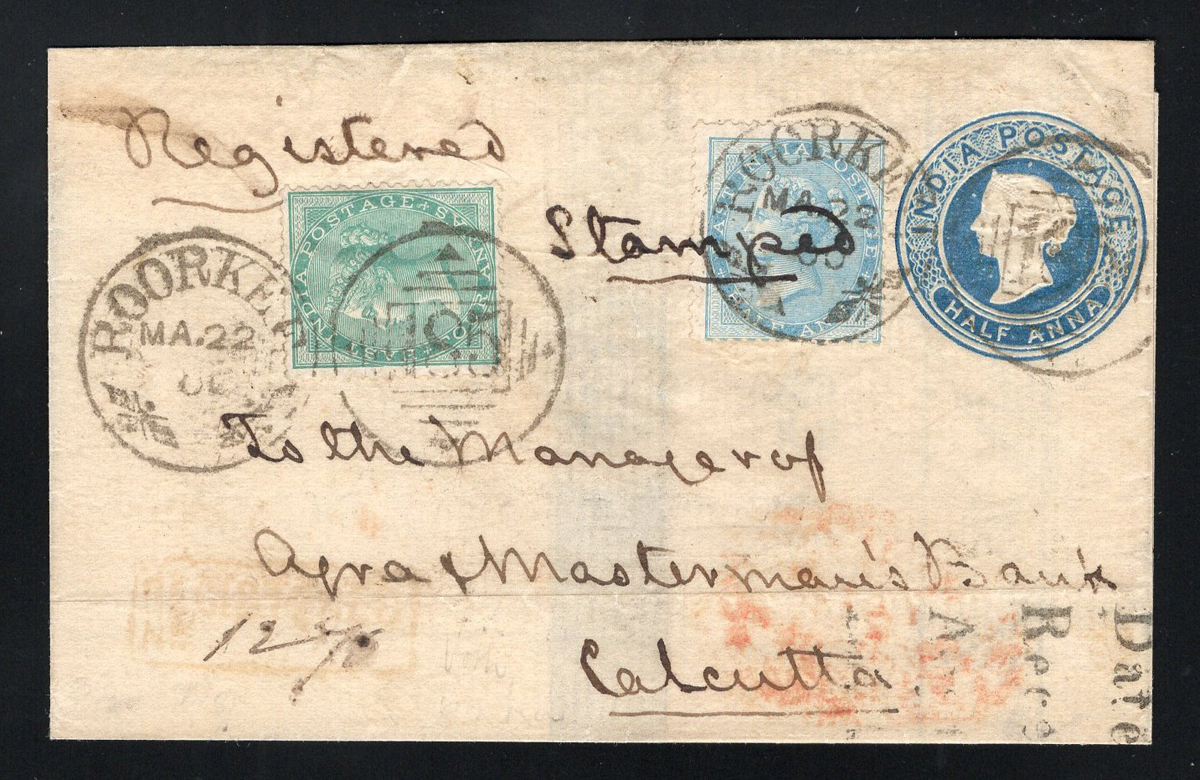 Registered
Stamped
EAST INDIA POSTAGE
FOUR ANNAS
ROORKEE
MA.22
ROORKEE
MA.22
HALF ANNA
INDIA POSTAGE
HALF ANNA
To the Manager of
Agra & Masterman's Bank
Calcutta
Date
Rec